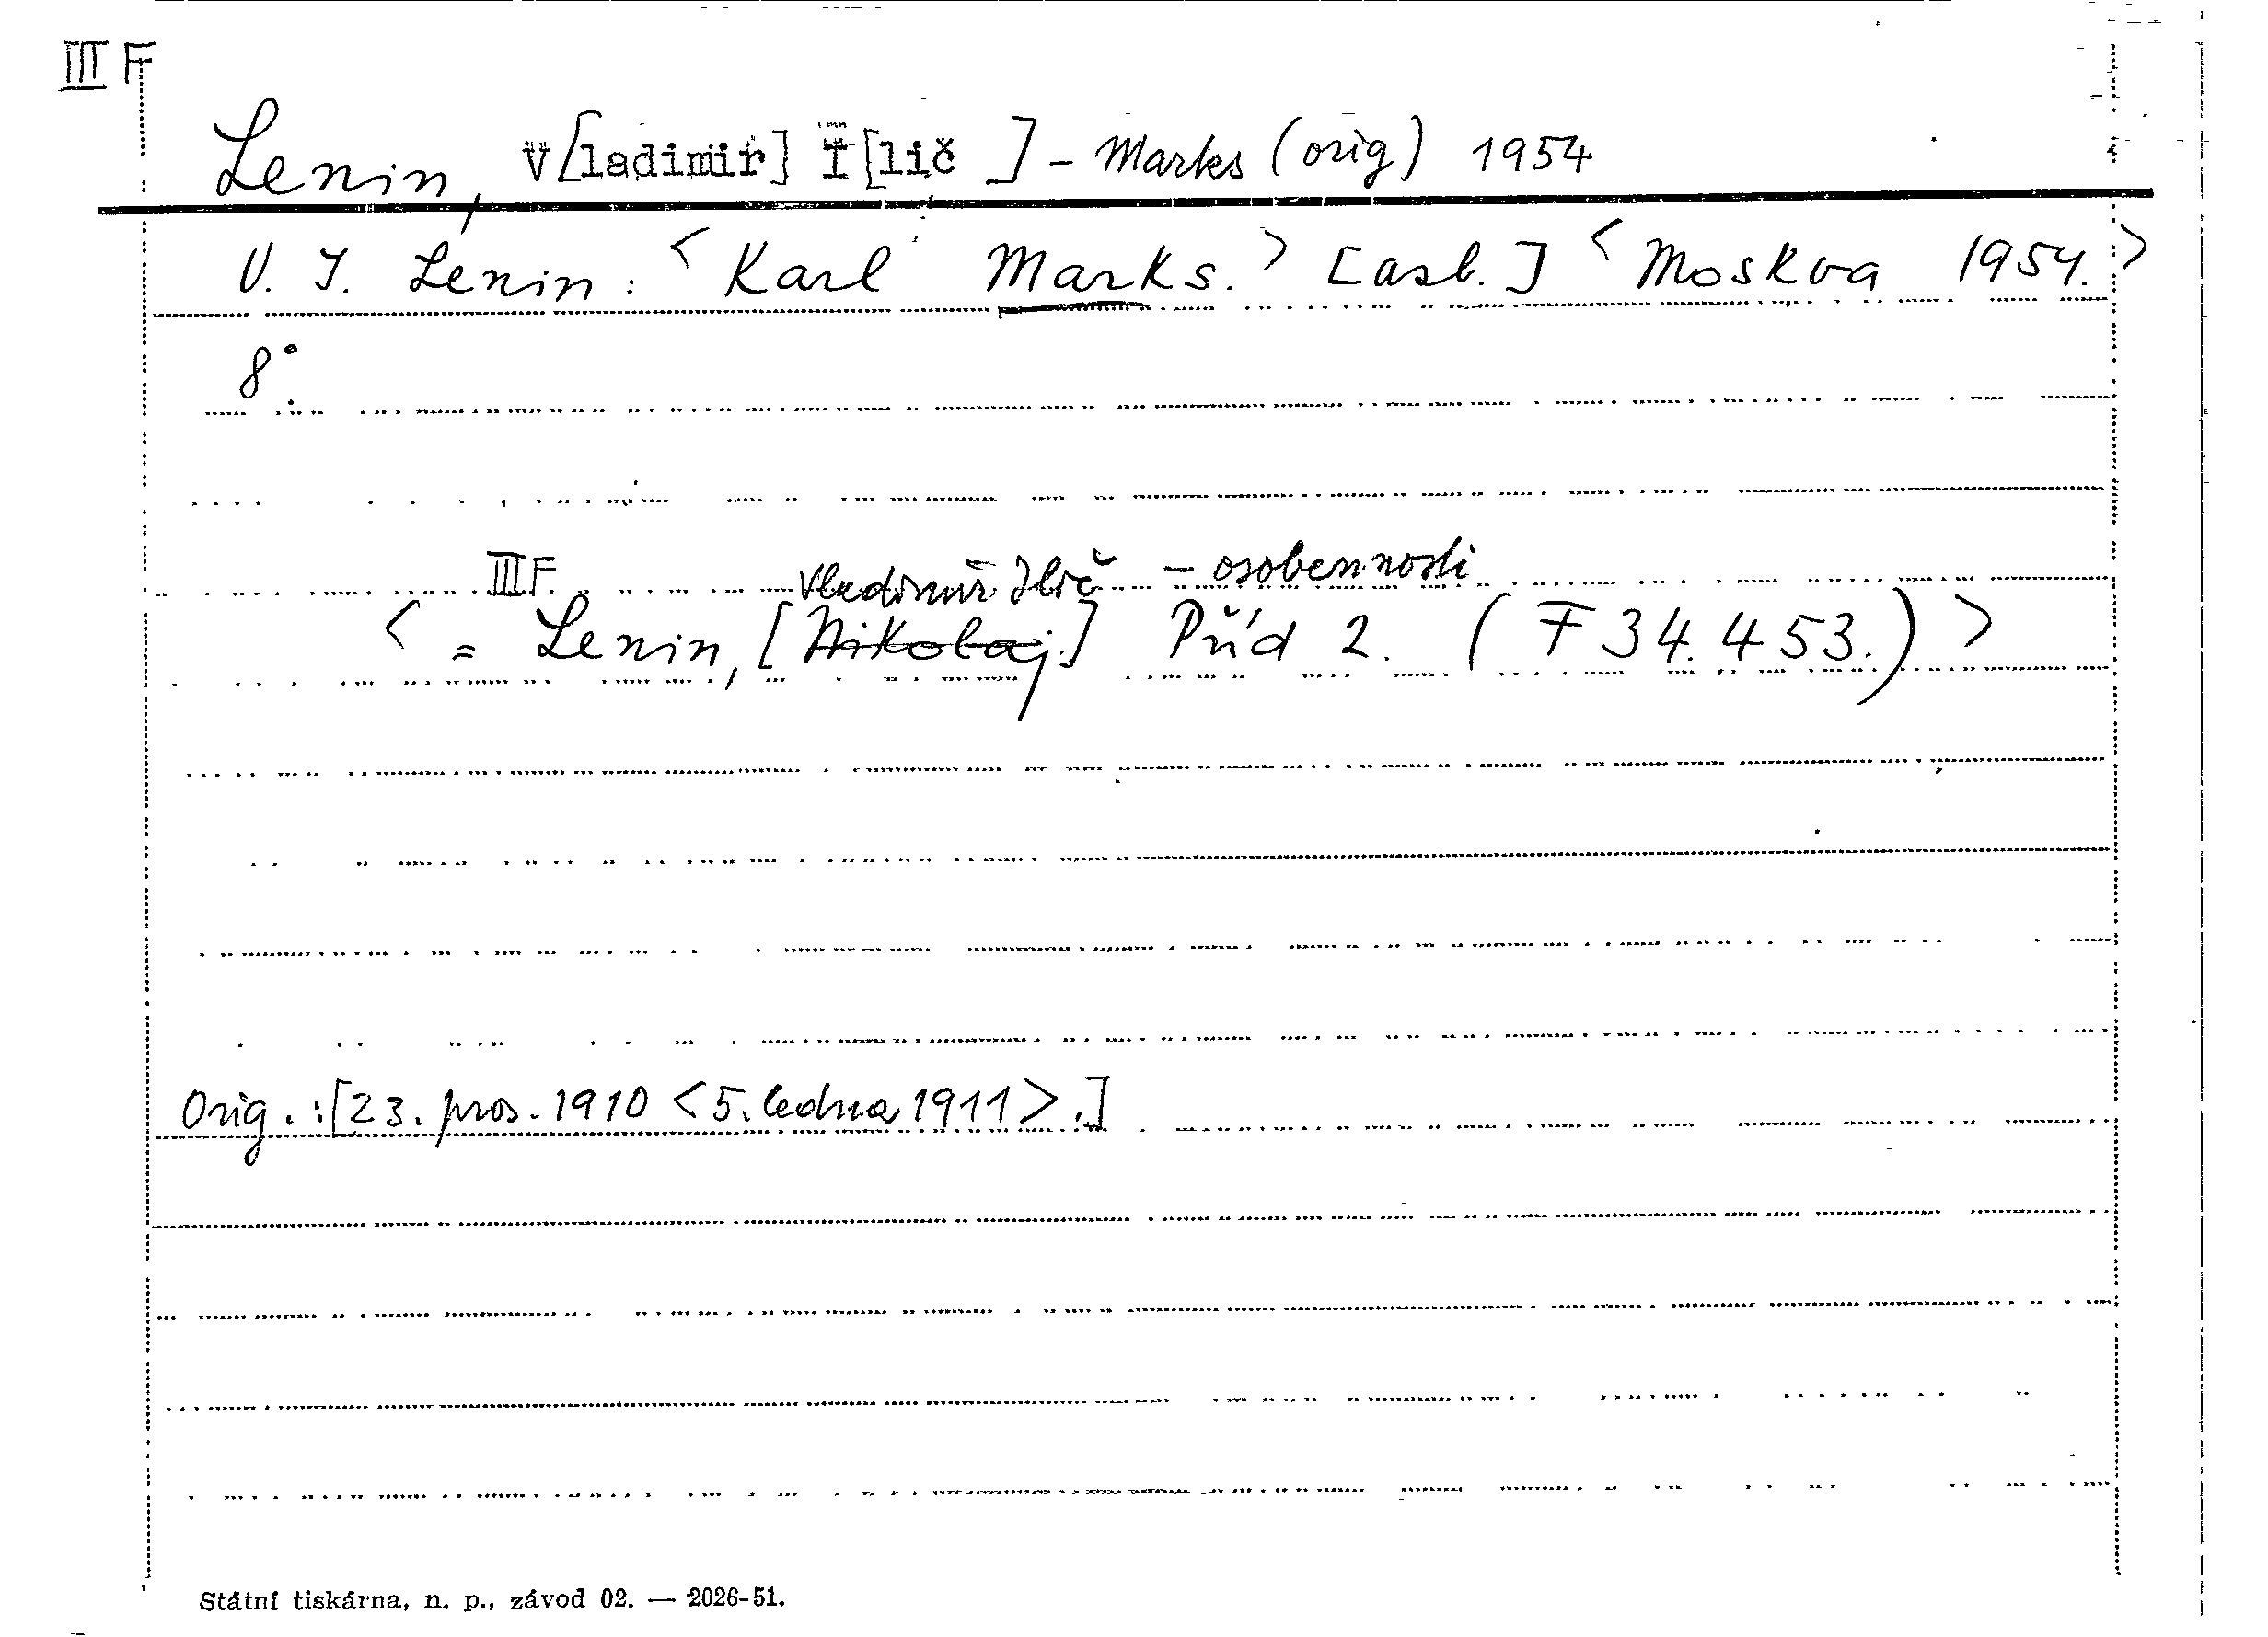 III F
Lenin, V[ladimir] I[lič ] - Marks (orig) 1954
V. I. Lenin: <Karl Marks.> [asb.] <Moskva 1954.>
8°.
III F Vladimir Ilič - osobennosti
< = Lenin, [Nikolaj.] Příd 2. (F 34.453.) >
Orig.:[23. pros. 1910 <5. ledna 1911>.]
Státní tiskárna, n. p., závod 02. — 2026-51.